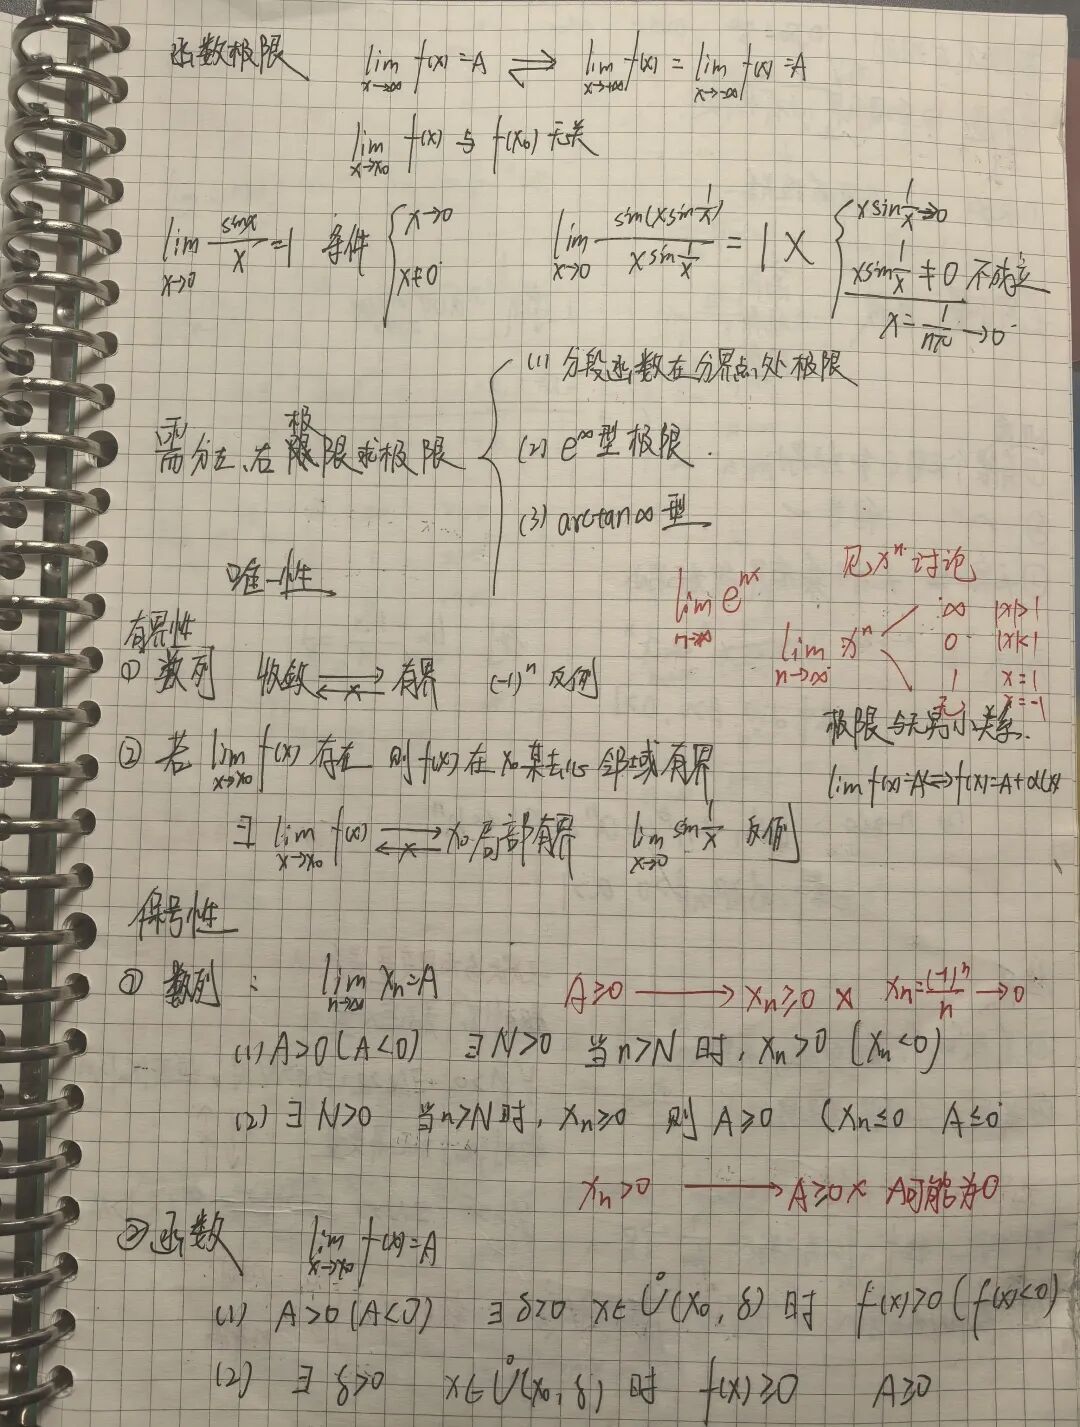 函数极限 lim_{x→∞} f(x)=A ⇌ lim_{x→+∞} f(x) = lim_{x→-∞} f(x) =A
lim_{x→x₀} f(x) 与 f(x₀) 无关
lim_{x→0} sinx/x =1 条件 { x→0
x≠0
lim_{x→0} sin(xsin 1/x) / xsin 1/x = 1 × { xsin 1/x →0
xsin 1/x ≠0 不成立
x= 1/nπ →0
需分左、右极限求极限
(1) 分段函数在分界点处极限
(2) e^∞型极限.
(3) arctan∞型
唯一性
lim_{n→∞} e^{nx} 见xⁿ讨论
lim_{n→∞} xⁿ
∞ |x|>1
0 |x|<1
1 x=1
无 x=-1
有界性
① 数列 收敛 ⇄ × 有界 (-1)ⁿ 反例
极限与无穷小关系.
lim f(x)=A⇔f(x)=A+α(x)
② 若 lim_{x→x₀} f(x) 存在 则f(x)在x₀某去心邻域有界
∃ lim_{x→x₀} f(x) ⇄ × x₀局部有界 lim_{x→0} sin 1/x 反例
保号性
① 数列: lim_{n→∞} xₙ=A
A≥0 → xₙ≥0 × xₙ=(-1)ⁿ/n →0
(1) A>0(A<0) ∃N>0 当n>N时, xₙ>0 (xₙ<0)
(2) ∃N>0 当n>N时, xₙ≥0 则 A≥0 (xₙ≤0 A≤0
xₙ>0 → A≥0 × A可能为0
②函数 lim_{x→x₀} f(x)=A
(1) A>0(A<0) ∃δ>0 x∈Ů(x₀,δ)时 f(x)>0(f(x)<0)
(2) ∃δ>0 x∈Ů(x₀,δ)时 f(x)≥0 A≥0